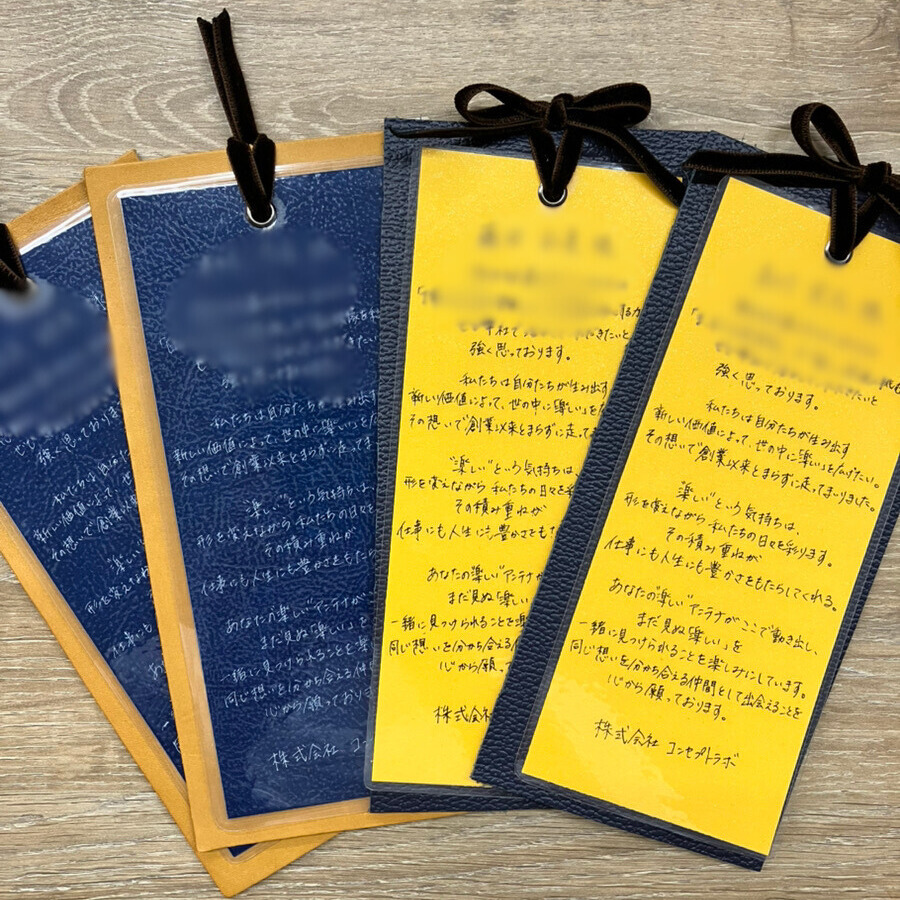 強く思っておりま
私たちは自分た
新しい価値によって、世
その想いで創業以
楽しい
形を変えなが
仕事にも
あ
私たちは自分たちが
新しい価値によって、世の中に"楽しい"を広
その想いで創業以来とまらずに走ってま
"楽しい"という気持ちは
形を変えながら 私たちの日々を
その積み重ねが
仕事にも人生にも豊かさをもたら
あなたの"楽しい"アンテナが
まだ見ぬ"楽しい"を
一緒に見つけられることを楽
同じ想いを分かち合える仲
心から願っておりま
株式会社 コン
きたいと
強く思っております。
私たちは自分たちが生み出す
新しい価値によって、世の中に"楽しい"を広
その想いで創業以来とまらずに走ってま
"楽しい"という気持ちは、
形を変えながら 私たちの日々を彩
その積み重ねが
仕事にも人生にも豊かさをも
あなたの"楽しい"アンテナが
まだ見ぬ"楽しい
一緒に見つけられることを楽
同じ想いを分かち合える
心から願って
株式会社
きたいと
強く思っております。
私たちは自分たちが生み出す
新しい価値によって、世の中に"楽しい"を広げたい。
その想いで創業以来とまらずに走ってまいりました。
"楽しい"という気持ちは、
形を変えながら 私たちの日々を彩ります。
その積み重ねが
仕事にも人生にも豊かさをもたらしてくれる。
あなたの"楽しい"アンテナがここで動き出し、
まだ見ぬ"楽しい"を
一緒に見つけられることを楽しみにしています。
同じ想いを分かち合える仲間として出会えることを
心から願っております。
株式会社 コンセプトラボ